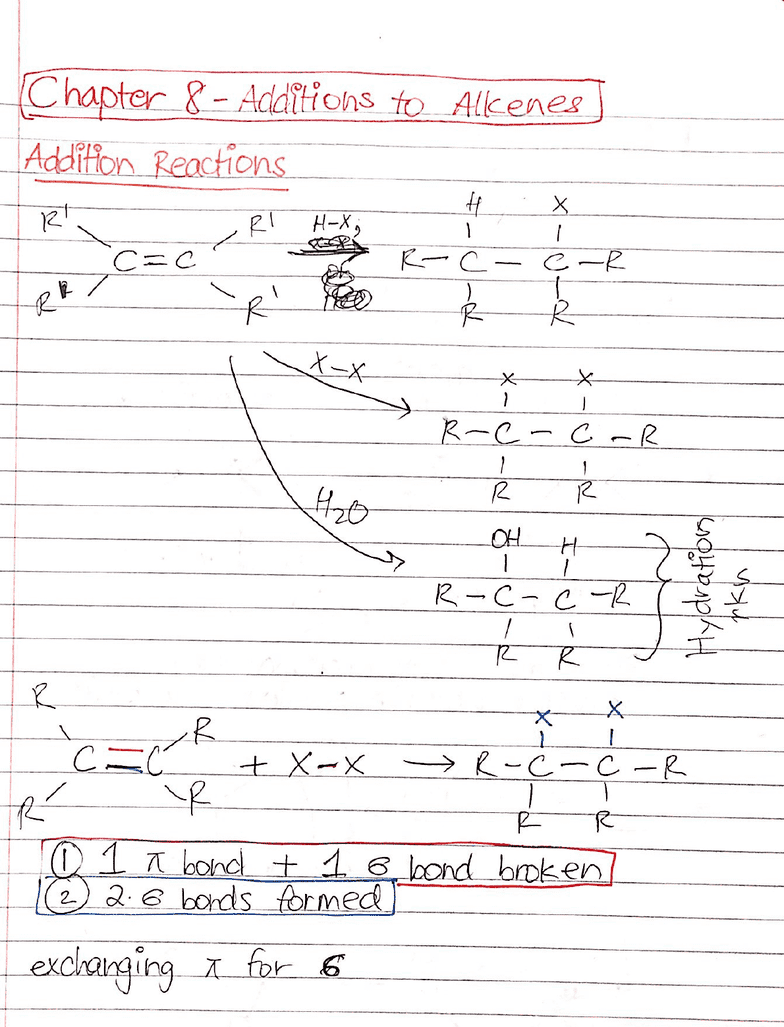 Chapter 8 - Additions to Alkenes
Addition Reactions
R' R' H-X, H X
C=C R-C-C-R
R R' R R
X-X X X
R-C-C-R
R R
H2O OH H
R-C-C-R
R R
Hydration
rxns
R R X X
C=C + X-X → R-C-C-R
R R R R
① 1 π bond + 1 σ bond broken
② 2 σ bonds formed
exchanging π for σ